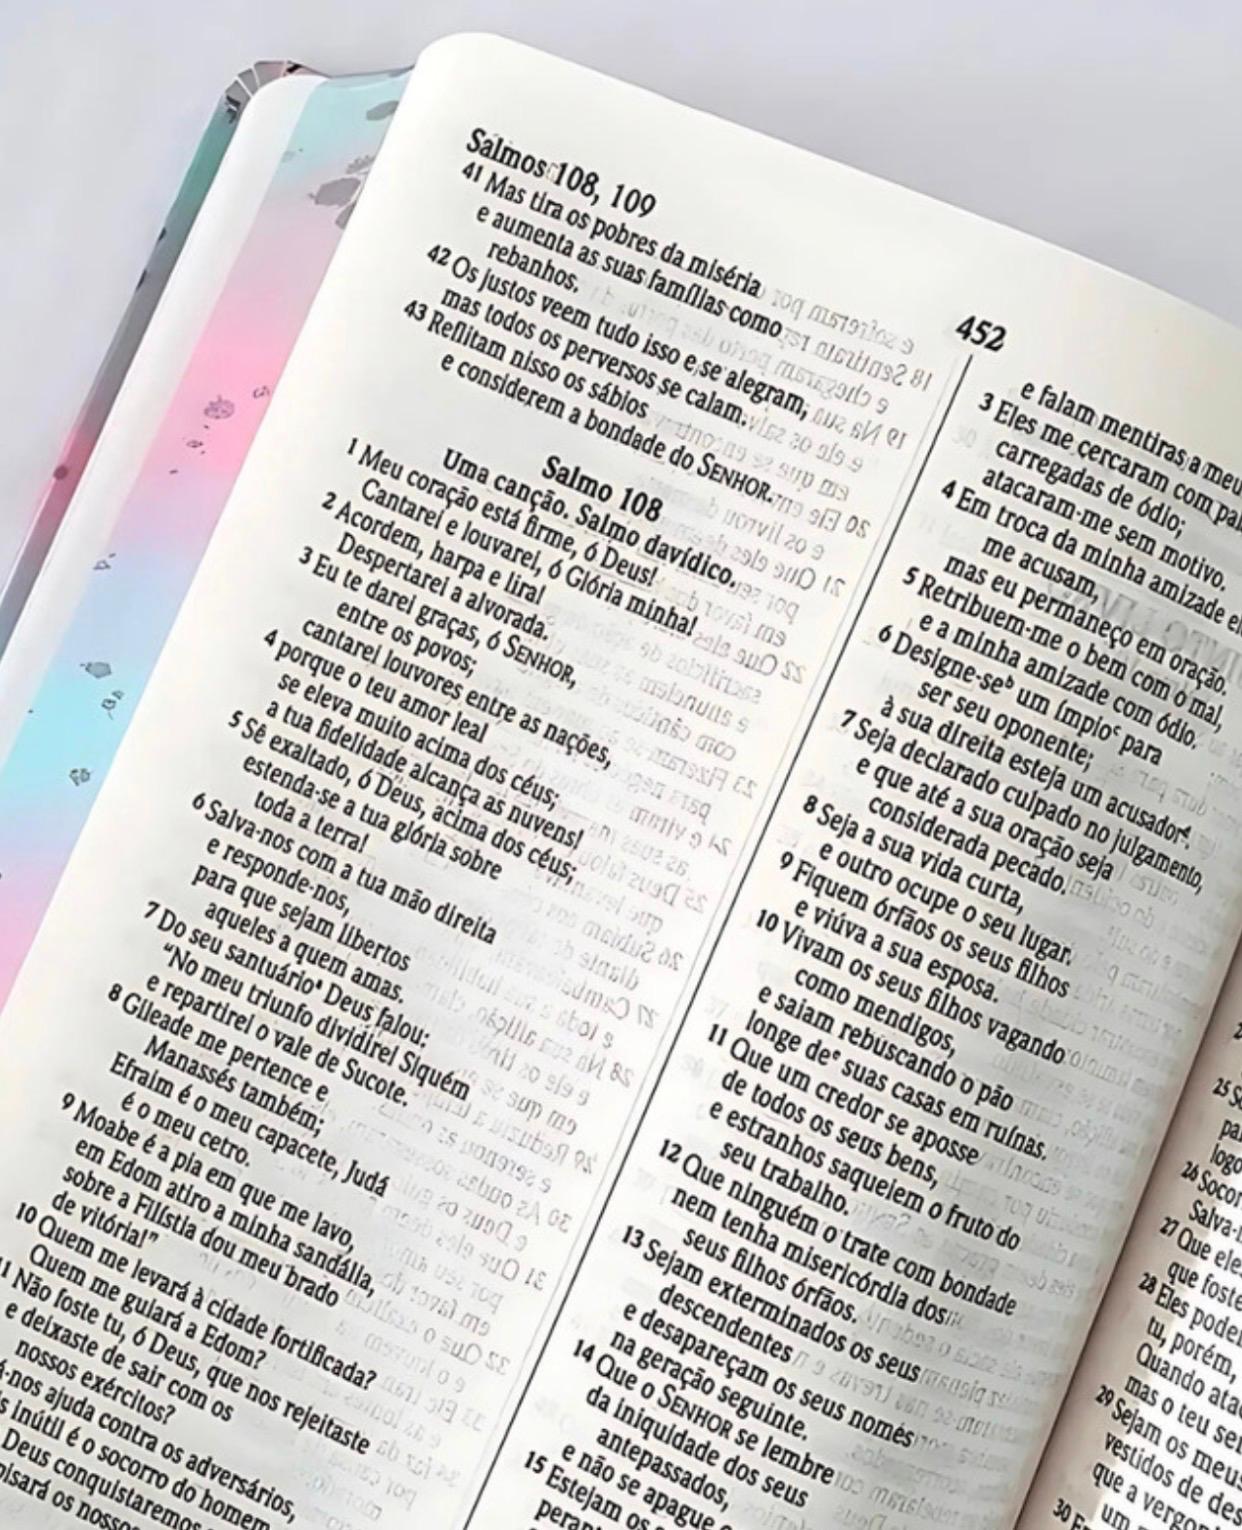 Salmos 108, 109
452
41 Mas tira os pobres da miséria
e aumenta as suas famílias como
rebanhos.
42 Os justos veem tudo isso e se alegram,
mas todos os perversos se calam.
43 Reflitam nisso os sábios
e considerem a bondade do SENHOR.
Salmo 108
Uma canção. Salmo davídico.
1 Meu coração está firme, ó Deus!
Cantarei e louvarei, ó Glória minha!
2 Acordem, harpa e lira!
Despertarei a alvorada.
3 Eu te darei graças, ó SENHOR,
entre os povos;
cantarei louvores entre as nações,
4 porque o teu amor leal
se eleva muito acima dos céus;
a tua fidelidade alcança as nuvens!
5 Sê exaltado, ó Deus, acima dos céus;
estenda-se a tua glória sobre
toda a terra!
6 Salva-nos com a tua mão direita
e responde-nos,
para que sejam libertos
aqueles a quem amas.
7 Do seu santuárioª Deus falou:
“No meu triunfo dividirei Siquém
e repartirei o vale de Sucote.
8 Gileade me pertence e
Manassés também;
Efraim é o meu capacete, Judá
é o meu cetro.
9 Moabe é a pia em que me lavo,
em Edom atiro a minha sandália,
sobre a Filístia dou meu brado
de vitória!”
10 Quem me levará à cidade fortificada?
Quem me guiará a Edom?
11 Não foste tu, ó Deus, que nos rejeitaste
e deixaste de sair com os
nossos exércitos?
-nos ajuda contra os adversários,
inútil é o socorro do homem
Deus conquistaremos
os nossos
e falam mentiras a meu
3 Eles me cercaram com
carregadas de ódio;
atacaram-me sem motivo.
4 Em troca da minha amizade
me acusam,
mas eu permaneço em oração.
5 Retribuem-me o bem com o mal,
e a minha amizade com ódio.
6 Designe-seᵇ um ímpioᶜ para
ser seu oponente;
à sua direita esteja um acusadorᵈ.
7 Seja declarado culpado no julgamento,
e que até a sua oração seja
considerada pecado.
8 Seja a sua vida curta,
e outro ocupe o seu lugar.
9 Fiquem órfãos os seus filhos
e viúva a sua esposa.
10 Vivam os seus filhos vagando
como mendigos,
e saiam rebuscando o pão
longe deᵉ suas casas em ruínas.
11 Que um credor se aposse
de todos os seus bens,
e estranhos saqueiem o fruto do
seu trabalho.
12 Que ninguém o trate com bondade
nem tenha misericórdia dos
seus filhos órfãos.
13 Sejam exterminados os seus
descendentes
e desapareçam os seus nomes
na geração seguinte.
14 Que o SENHOR se lembre
da iniquidade dos seus
antepassados,
e não se apague
15 Estejam os
25
logo
26
27 Que
que foste
28 Eles
tu, porém,
Quando
mas o teu
29 Sejam os meus
vestidos de
que a
30
um